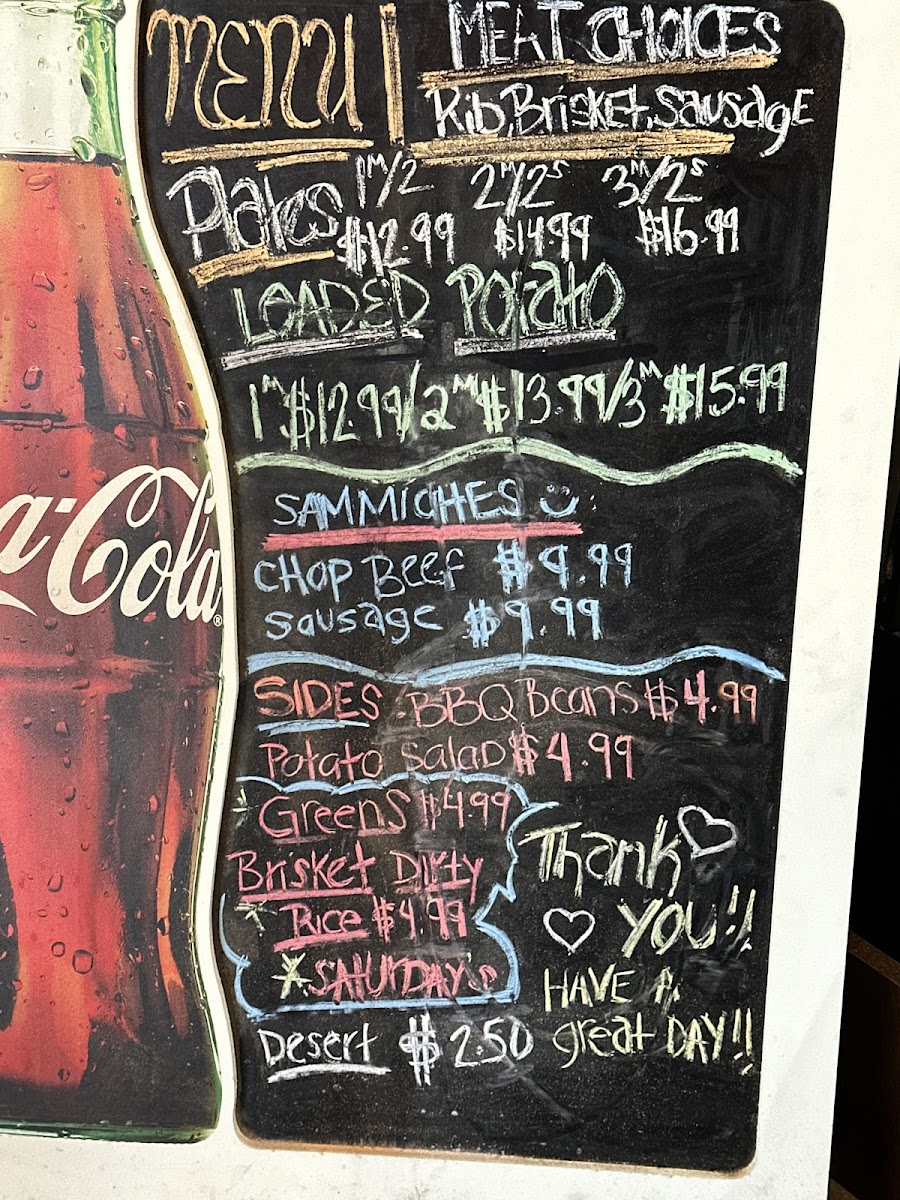 MENU
MEAT CHOICES
Rib, Brisket, Sausage
Plates 1M/2 2M/2S 3M/2S
$12.99 $14.99 $16.99
LOADED Potato
1M $12.99/2M $13.99/3M $15.99
SAMMICHES
CHOP BEEF $9.99
Sausage $9.99
a-Cola®
SIDES - BBQ Beans $4.99
Potato Salad $4.99
Greens $4.99
Brisket Dirty
* Rice $4.99
*SATURDAYS
Desert $2.50
Thank
YOU!!
HAVE A
great DAY!!